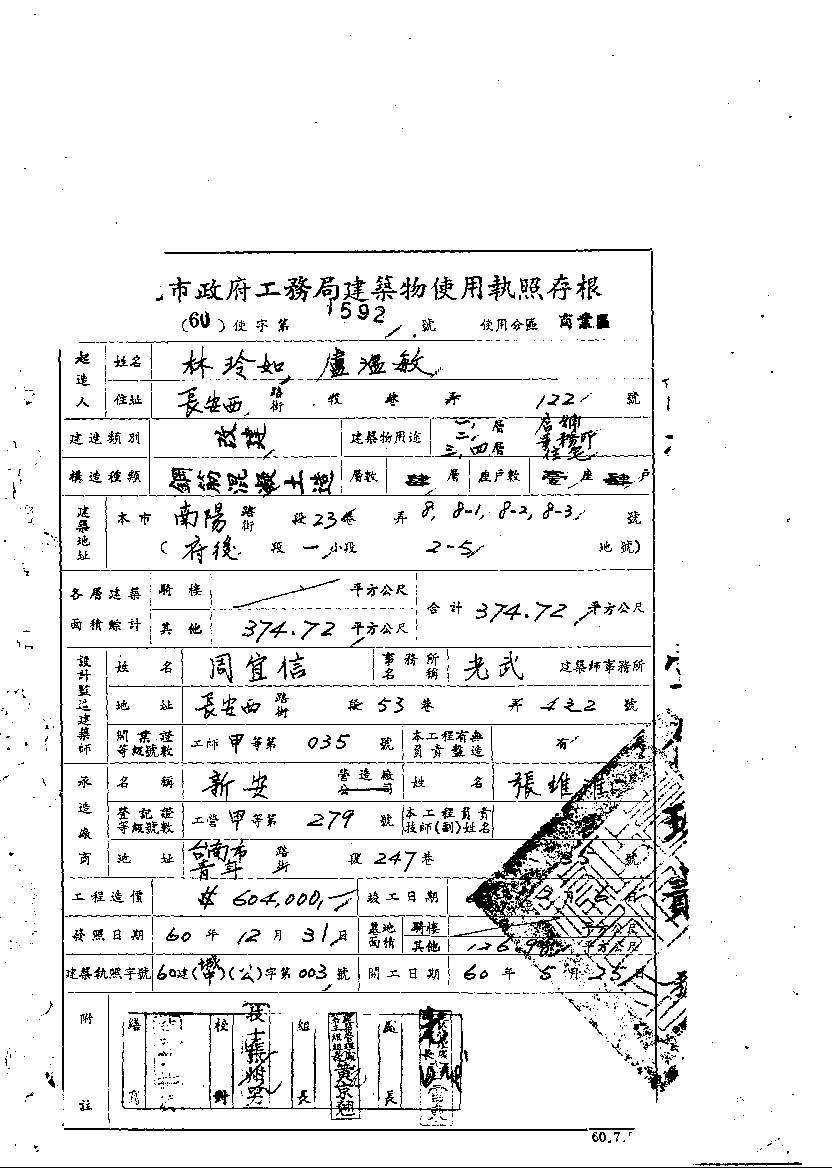 市政府工務局建築物使用執照存根
(60)使字第1592號 使用分區 商業區
起造人 姓名 林玲如 盧溫敏
住址 長安西 路街 段 巷 弄 122 號
建造類別 改建 建築物用途 一、二、層 店舖 事務所
三、四層 住宅
構造種類 鋼筋混凝土造 層數 肆層 座戶數 壹座肆戶
建築地址 本市 南陽 路街 段23巷 弄8, 8-1, 8-2, 8-3 號
(府後 段 一 小段 2-5 地號)
各層建築面積總計 騎樓 平方公尺 合計 374.72 平方公尺
其他 374.72 平方公尺
設計監造建築師 姓名 周宜信 事務所名稱 光武 建築師事務所
地址 長安西 路街 段53巷 弄 號
開業證等級號數 工師甲等第 035 號 本工程有無負責監造 有
承造廠商 名稱 新安 營造廠公司 姓名 張
登記證等級號數 工營甲等第 279 號 本工程負責技師(副)姓名
地址 台南市 路街 段247巷 35 號
工程造價 $604,000,- 竣工日期 月 日
發照日期 60年12月31日 基地面積 騎樓 平方公尺
其他 平方公尺
建築執照字號 60建( )(公)字第003號 開工日期 60年5月25日
附註 繕寫 校對 組長 長
60.7.